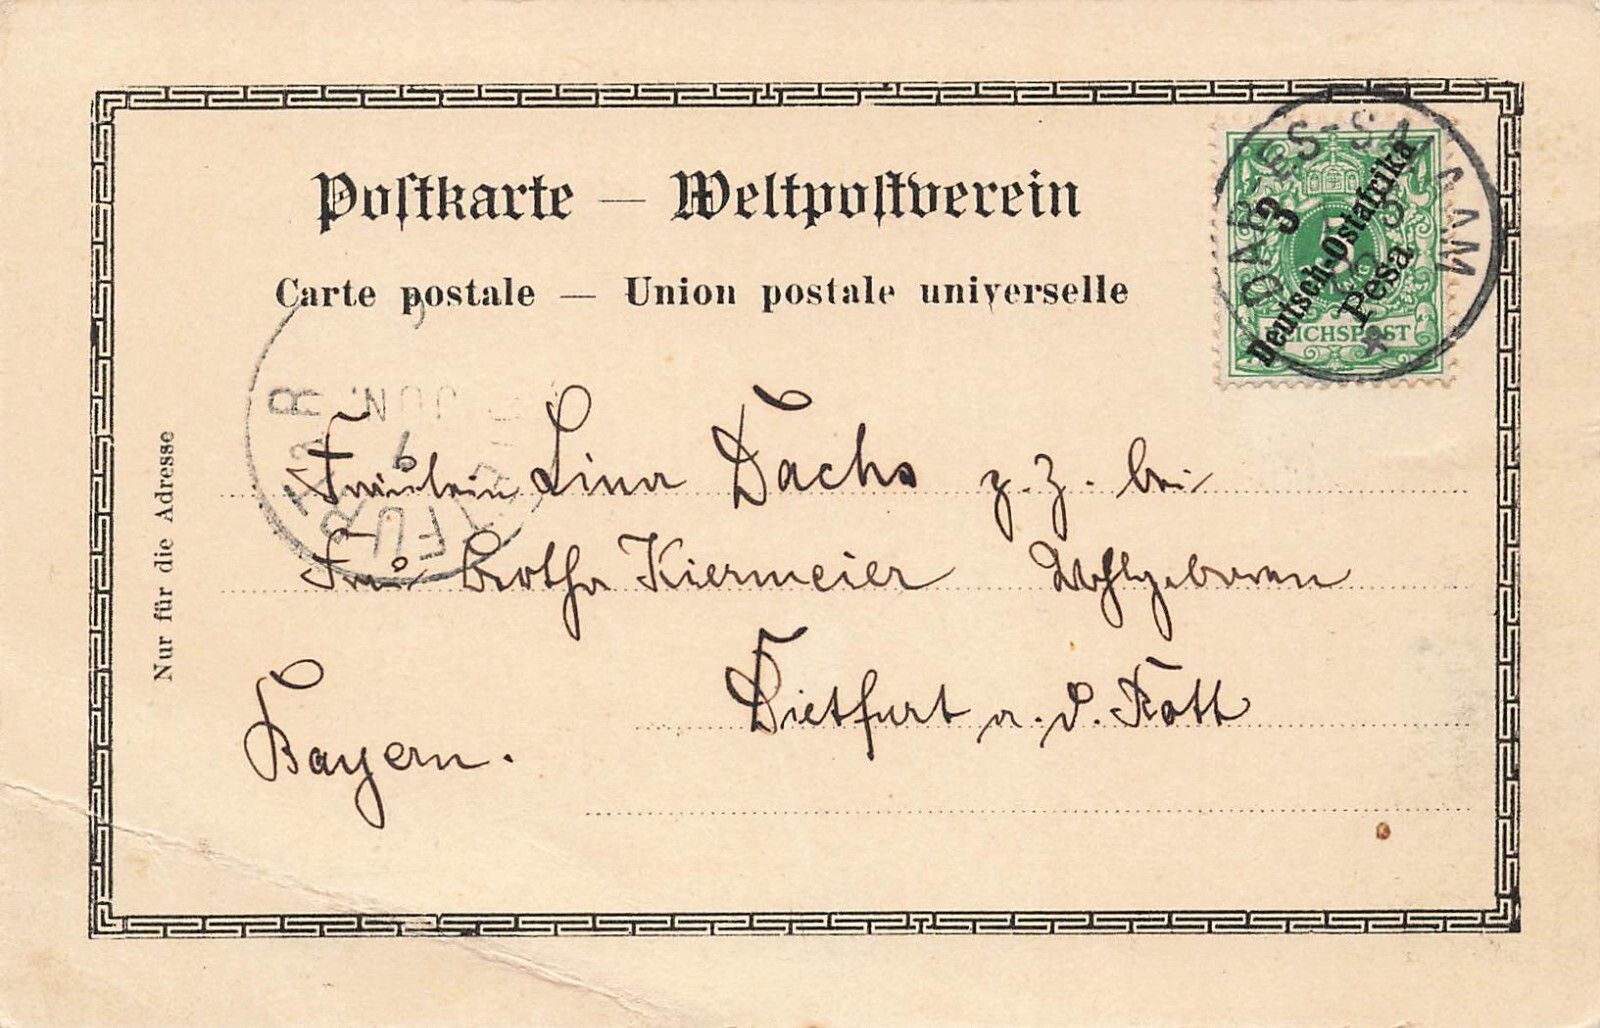 Postkarte — Weltpostverein
Carte postale — Union postale universelle
DAR-ES-SALAAM
3
Deutsch-Ostafrika
Pesa
5
REICHSPOST
JUN.
Nur für die Adresse
Fräulein Lina Dachs z. Z. bei
Frau Bertha Kiermeier Wohlgeboren
Dietfurt a. d. Rott
Bayern.